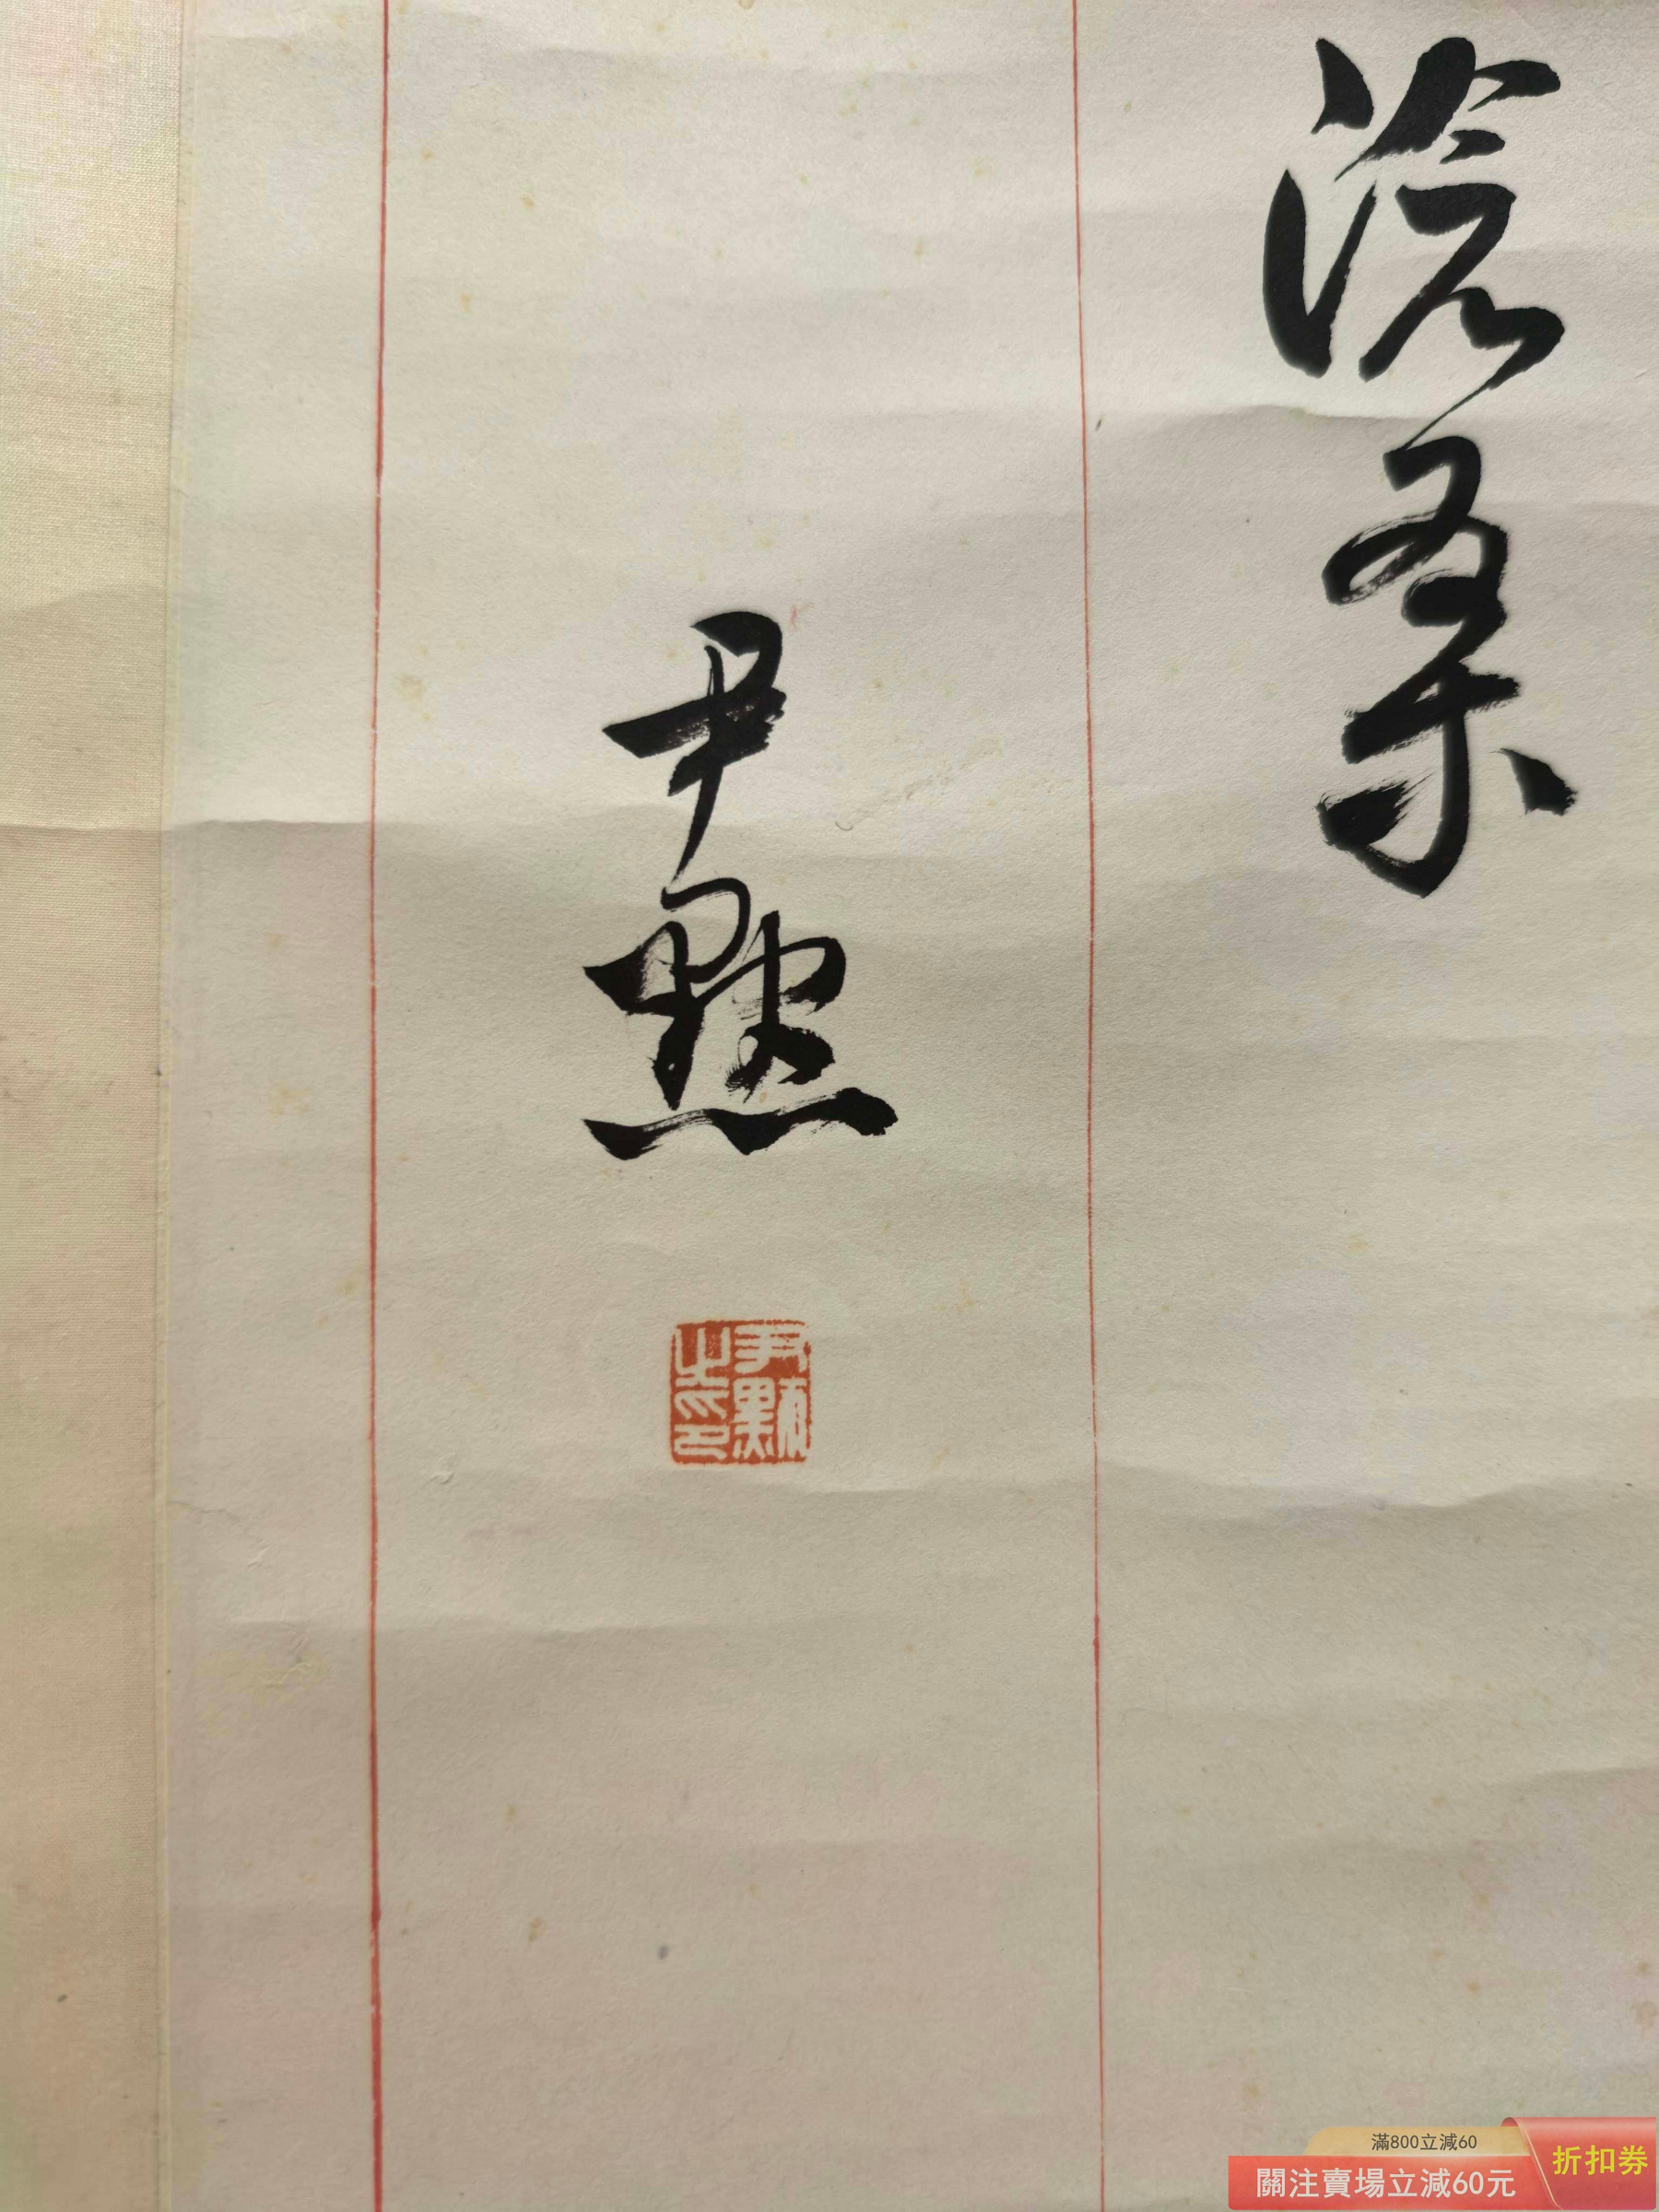 滄桑
尹默
尹默之印
滿800立減60
關注賣場立減60元
折扣券